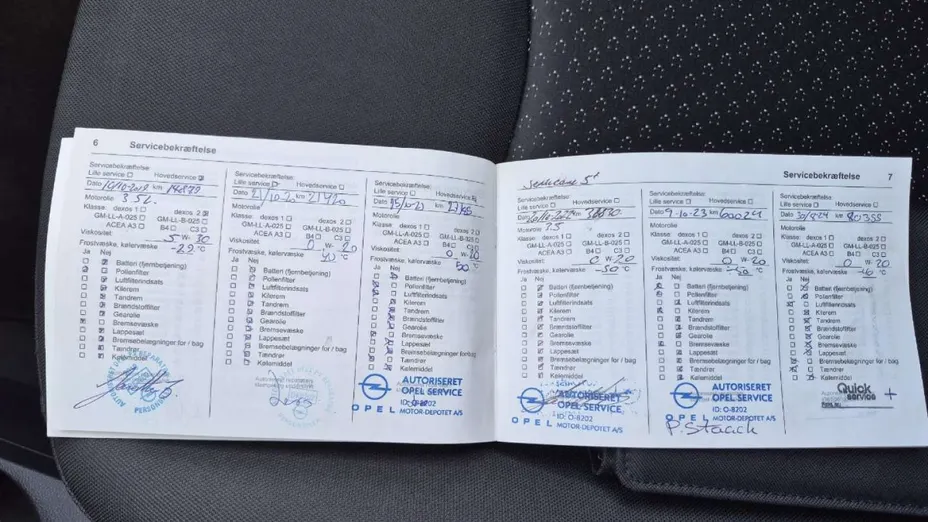 6 Servicebekræftelse
Servicebekræftelse
Lille service Hovedservice
Dato 10/10-2019 km 14872
Motorolie 3.5L.
Klasse: dexos 1 dexos 2
GM-LL-A-025 GM-LL-B-025
ACEA A3 B4 C3
Viskositet 5 W- 30
Frostvæske, kølervæske -22 °C
Ja Nej
Batteri (fjernbetjening)
Pollenfilter
Luftfilterindsats
Kilerem
Tandrem
Brændstoffilter
Gearolie
Bremsevæske
Lappesæt
Bremsebelægninger for / bag
Tændrør
Kølemiddel
Servicebekræftelse
Lille service Hovedservice
Dato km
Motorolie
Klasse: dexos 1 dexos 2
GM-LL-A-025 GM-LL-B-025
ACEA A3 B4 C3
Viskositet 0 W- 20
Frostvæske, kølervæske °C
Ja Nej
Batteri (fjernbetjening)
Pollenfilter
Luftfilterindsats
Kilerem
Tandrem
Brændstoffilter
Gearolie
Bremsevæske
Lappesæt
Bremsebelægninger for / bag
Tændrør
Kølemiddel
Servicebekræftelse
Lille service Hovedservice
Dato km
Motorolie
Klasse: dexos 1 dexos 2
GM-LL-A-025 GM-LL-B-025
ACEA A3 B4 C3
Viskositet 0 W- 20
Frostvæske, kølervæske 50 °C
Ja Nej
Batteri (fjernbetjening)
Pollenfilter
Luftfilterindsats
Kilerem
Tandrem
Brændstoffilter
Gearolie
Bremsevæske
Lappesæt
Bremsebelægninger for / bag
Tændrør
Kølemiddel
AUTORISERET
OPEL SERVICE
ID: O-8202
OPEL MOTOR-DEPOTET A/S
Servicebekræftelse 7
Servicebekræftelse
Lille service Hovedservice
Dato km
Motorolie
Klasse: dexos 1 dexos 2
GM-LL-A-025 GM-LL-B-025
ACEA A3 B4 C3
Viskositet 0 W- 20
Frostvæske, kølervæske -50 °C
Ja Nej
Batteri (fjernbetjening)
Pollenfilter
Luftfilterindsats
Kilerem
Tandrem
Brændstoffilter
Gearolie
Bremsevæske
Lappesæt
Bremsebelægninger for / bag
Tændrør
Kølemiddel
AUTORISERET
OPEL SERVICE
ID: O-8202
OPEL MOTOR-DEPOTET A/S
Servicebekræftelse
Lille service Hovedservice
Dato 9-10-23 km 60024
Motorolie
Klasse: dexos 1 dexos 2
GM-LL-A-025 GM-LL-B-025
ACEA A3 B4 C3
Viskositet 0 W- 20
Frostvæske, kølervæske °C
Ja Nej
Batteri (fjernbetjening)
Pollenfilter
Luftfilterindsats
Kilerem
Tandrem
Brændstoffilter
Gearolie
Bremsevæske
Lappesæt
Bremsebelægninger for / bag
Tændrør
Kølemiddel
AUTORISERET
OPEL SERVICE
ID: O-8202
OPEL MOTOR-DEPOTET A/S
P. Staack
Servicebekræftelse
Lille service Hovedservice
Dato km 80355
Motorolie
Klasse: dexos 1 dexos 2
GM-LL-A-025 GM-LL-B-025
ACEA A3 B4 C3
Viskositet 0 W- 20
Frostvæske, kølervæske °C
Ja Nej
Batteri (fjernbetjening)
Pollenfilter
Luftfilterindsats
Kilerem
Tandrem
Brændstoffilter
Gearolie
Bremsevæske
Lappesæt
Bremsebelægninger for / bag
Tændrør
Kølemiddel
Quick
service